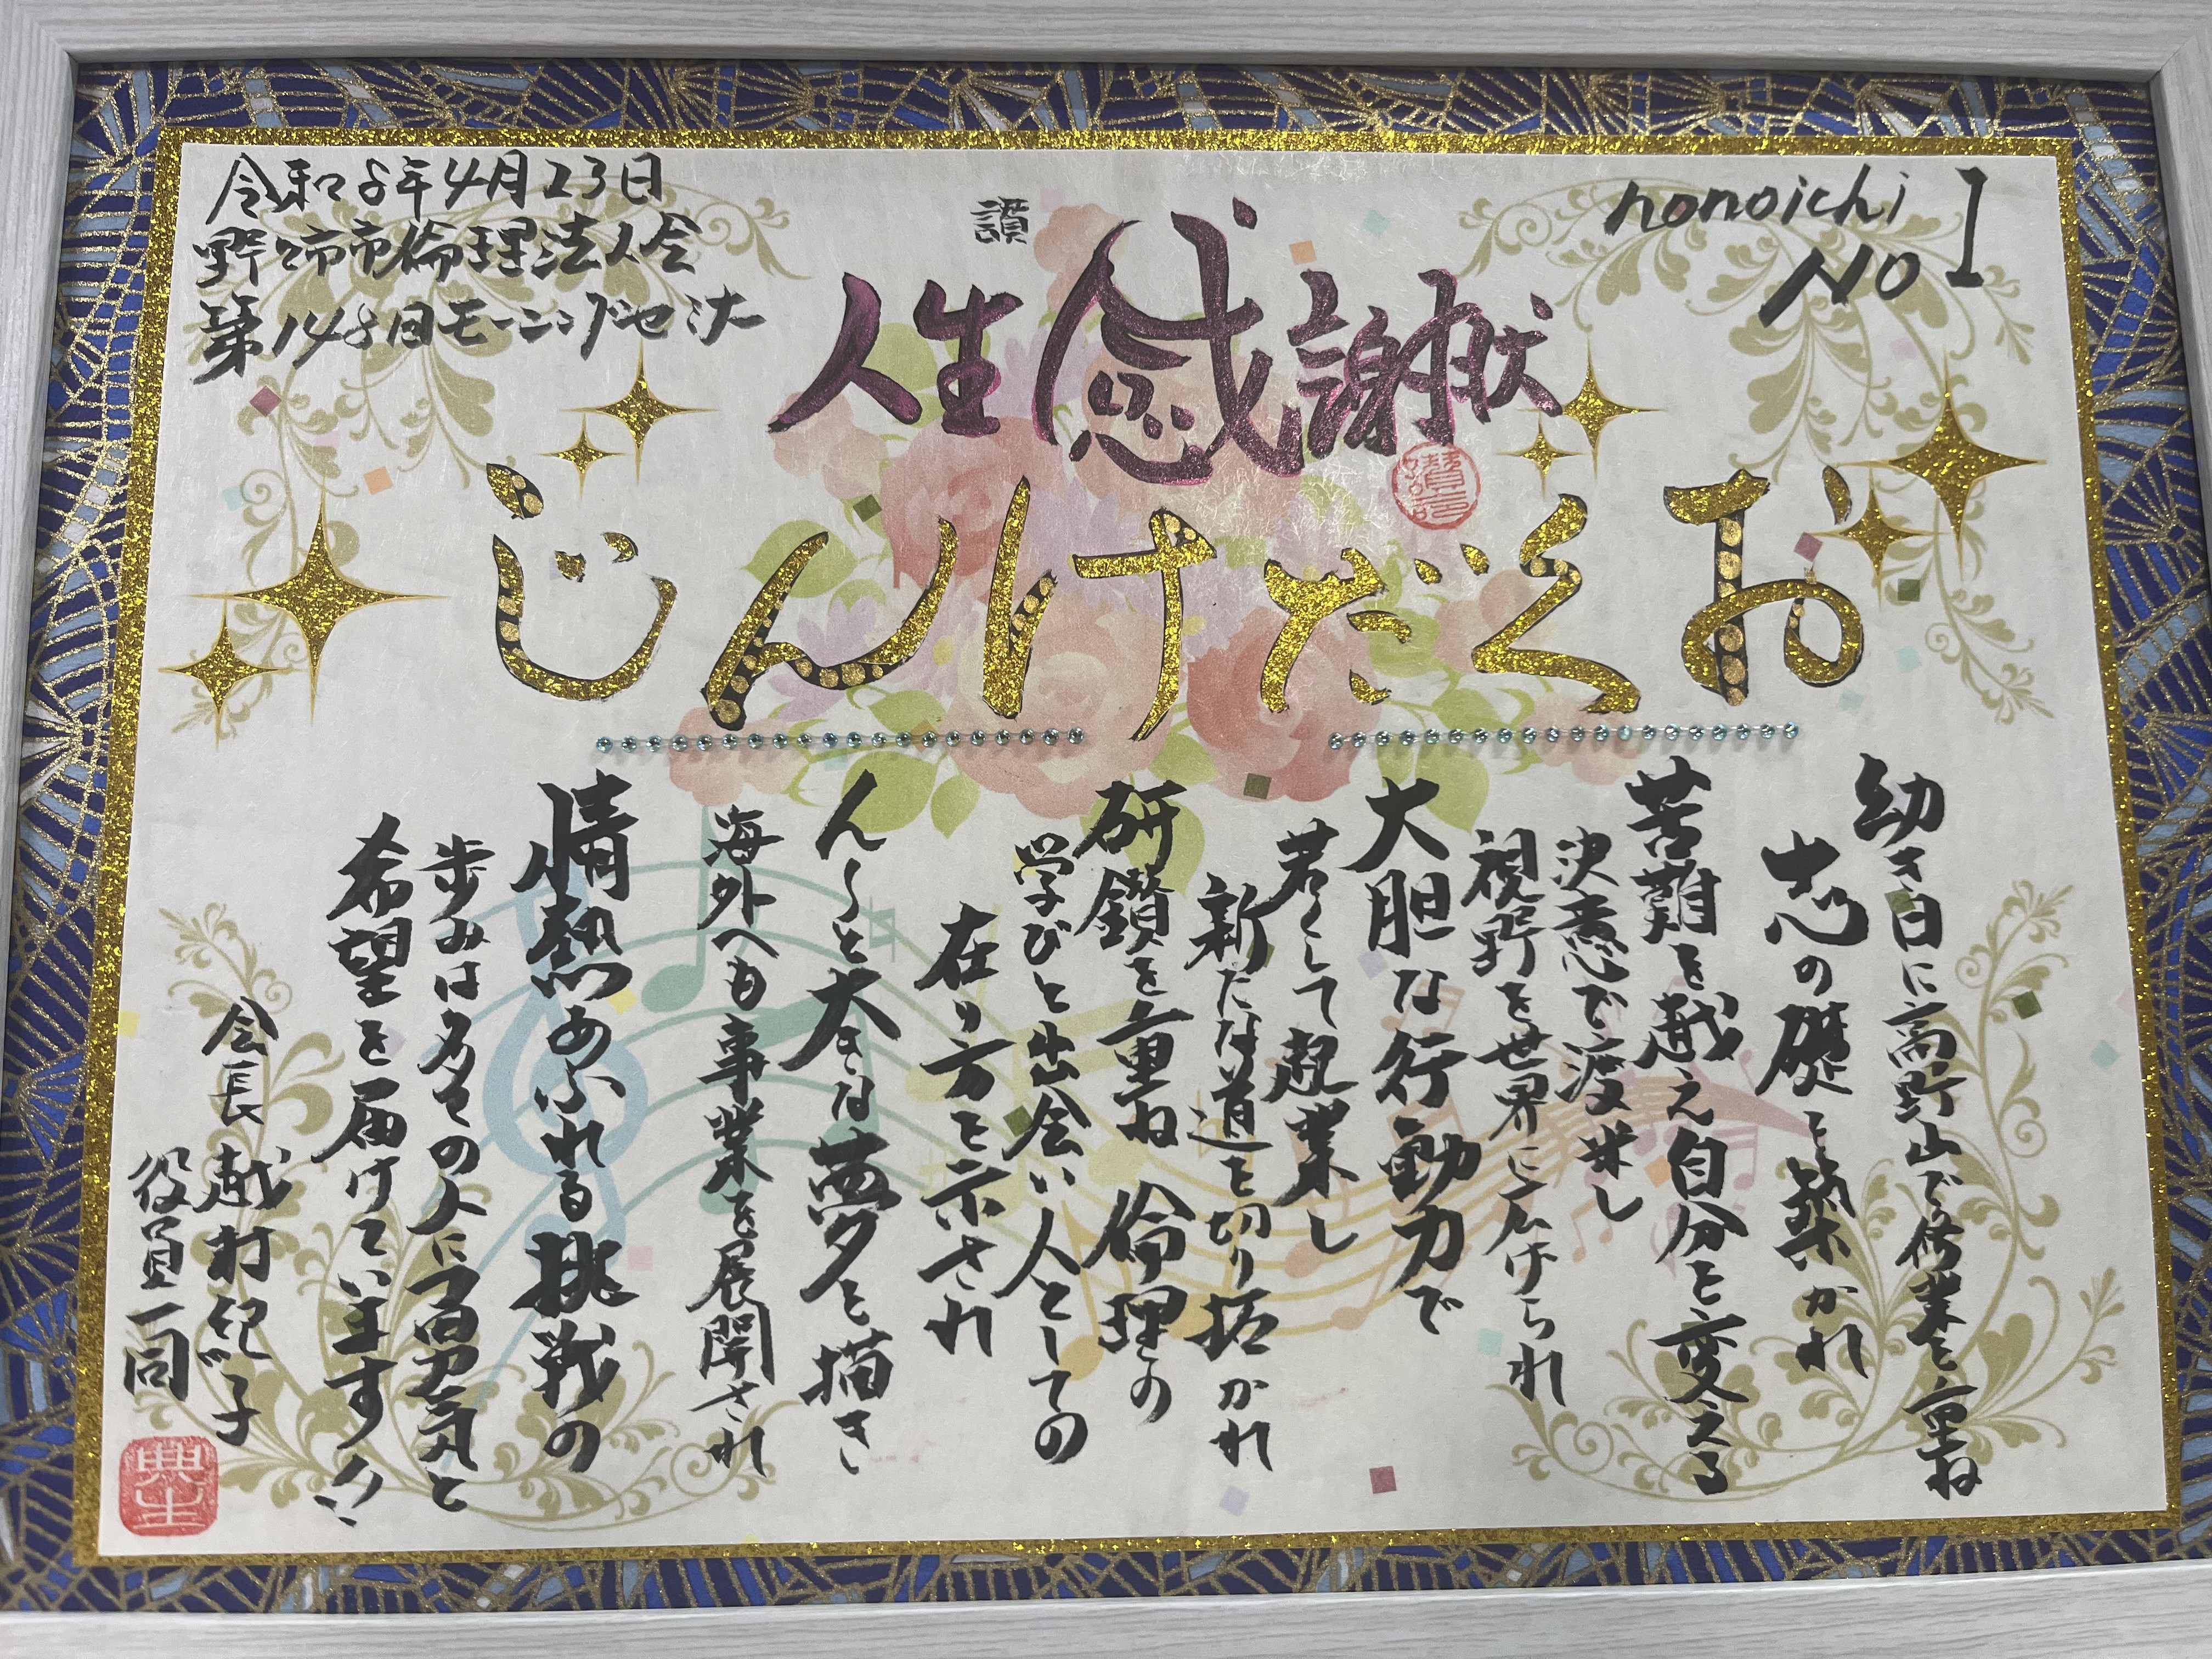 nonoichi
NO 1
讃
人生感謝状
おくだけんじ
令和8年4月23日
野々市市倫理法人会
第148回モーニングセミナー
幼き日に高野山で修業を重ね
志の礎を築かれ
苦難を越え自分を変える
決意で渡米し
視野を世界に広げられ
大胆な行動力で
若くして起業し
新たな道を切り拓かれ
研鑽を重ね 倫理の
学びと出会い人としての
在り方を示され
人〻と大きな夢を描き
海外へも事業を展開され
情熱あふれる挑戦の
歩みは多くの人に勇気と
希望を届けています!!
会長 越村紀子
役員一同